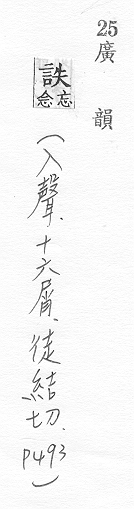 25
廣韻
詄 忘忩
(入聲.十六屑.徒結切.P493)